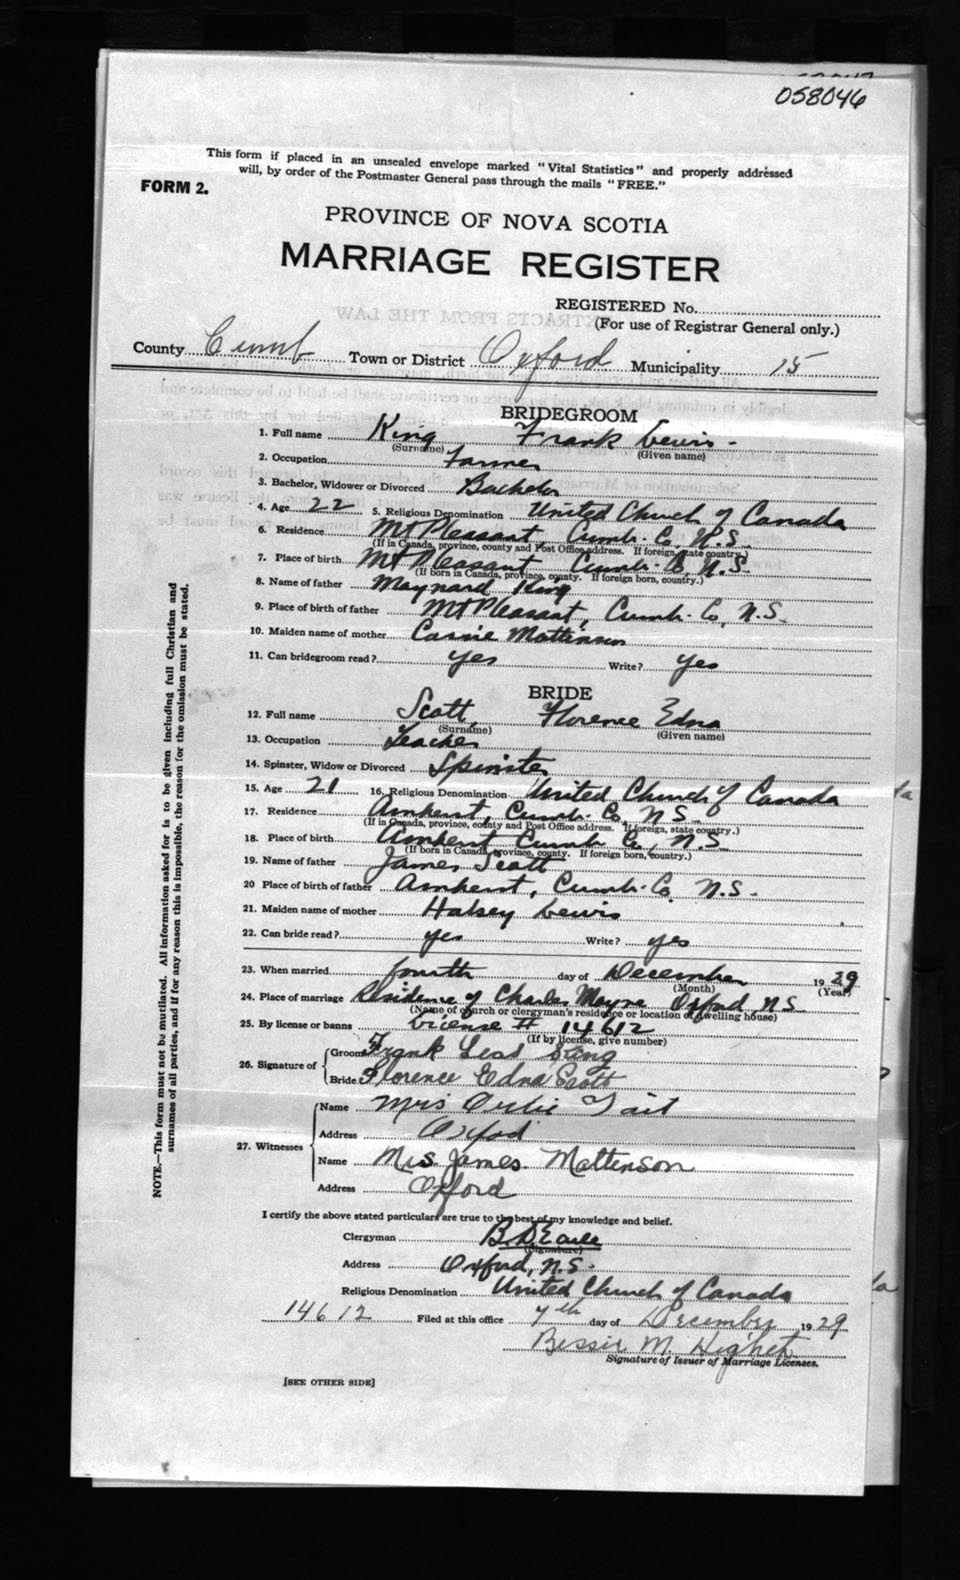 058046
This form if placed in an unsealed envelope marked "Vital Statistics" and properly addressed
will, by order of the Postmaster General pass through the mails "FREE."
FORM 2.
PROVINCE OF NOVA SCOTIA
MARRIAGE REGISTER
REGISTERED No.
(For use of Registrar General only.)
County Cumb Town or District Oxford Municipality 15
BRIDEGROOM
1. Full name King Frank Lewis
(Surname) (Given name)
2. Occupation Farmer
3. Bachelor, Widower or Divorced Bachelor
4. Age 22 5. Religious Denomination United Church of Canada
6. Residence Mt Pleasant, Cumb. Co. N.S.
(If in Canada, province, county and Post Office address. If foreign, state country.)
7. Place of birth Mt Pleasant Cumb. Co, N.S.
(If born in Canada, province, county. If foreign born, country.)
8. Name of father Maynard King
9. Place of birth of father Mt Pleasant, Cumb. Co, N.S.
10. Maiden name of mother Carrie Mattinson
11. Can bridegroom read? yes Write? yes
BRIDE
12. Full name Scott, Florence Edna
(Surname) (Given name)
13. Occupation Teacher
14. Spinster, Widow or Divorced Spinster
15. Age 21 16. Religious Denomination United Church of Canada
17. Residence Amherst, Cumb. Co. N.S.
(If in Canada, province, county and Post Office address. If foreign, state country.)
18. Place of birth Amherst Cumb Co, N.S.
(If born in Canada, province, county. If foreign born, country.)
19. Name of father James Scott
20 Place of birth of father Amherst, Cumb. Co. N.S.
21. Maiden name of mother Halsey Lewis
22. Can bride read? yes Write? yes
23. When married fourth day of December 1929
(Month) (Year)
24. Place of marriage Residence of Charles Mayne Oxford, N.S.
(Name of church or clergyman's residence or location of dwelling house)
25. By license or banns License # 14612
(If by license, give number)
26. Signature of Groom Frank King
Bride Florence Edna Scott
27. Witnesses
Name Mrs Tait
Address Oxford
Name Mrs. James Mattinson
Address Oxford
I certify the above stated particulars are true to the best of my knowledge and belief.
Clergyman B D Earle
(Signature)
Address Oxford, N.S.
Religious Denomination United Church of Canada
14612 Filed at this office 7th day of December 1929
Bessie M. Highet
Signature of Issuer of Marriage Licenses.
[SEE OTHER SIDE]
NOTE.—This form must not be mutilated. All information asked for is to be given including full Christian and
surnames of all parties, and if for any reason this is impossible, the reason for the omission must be stated.